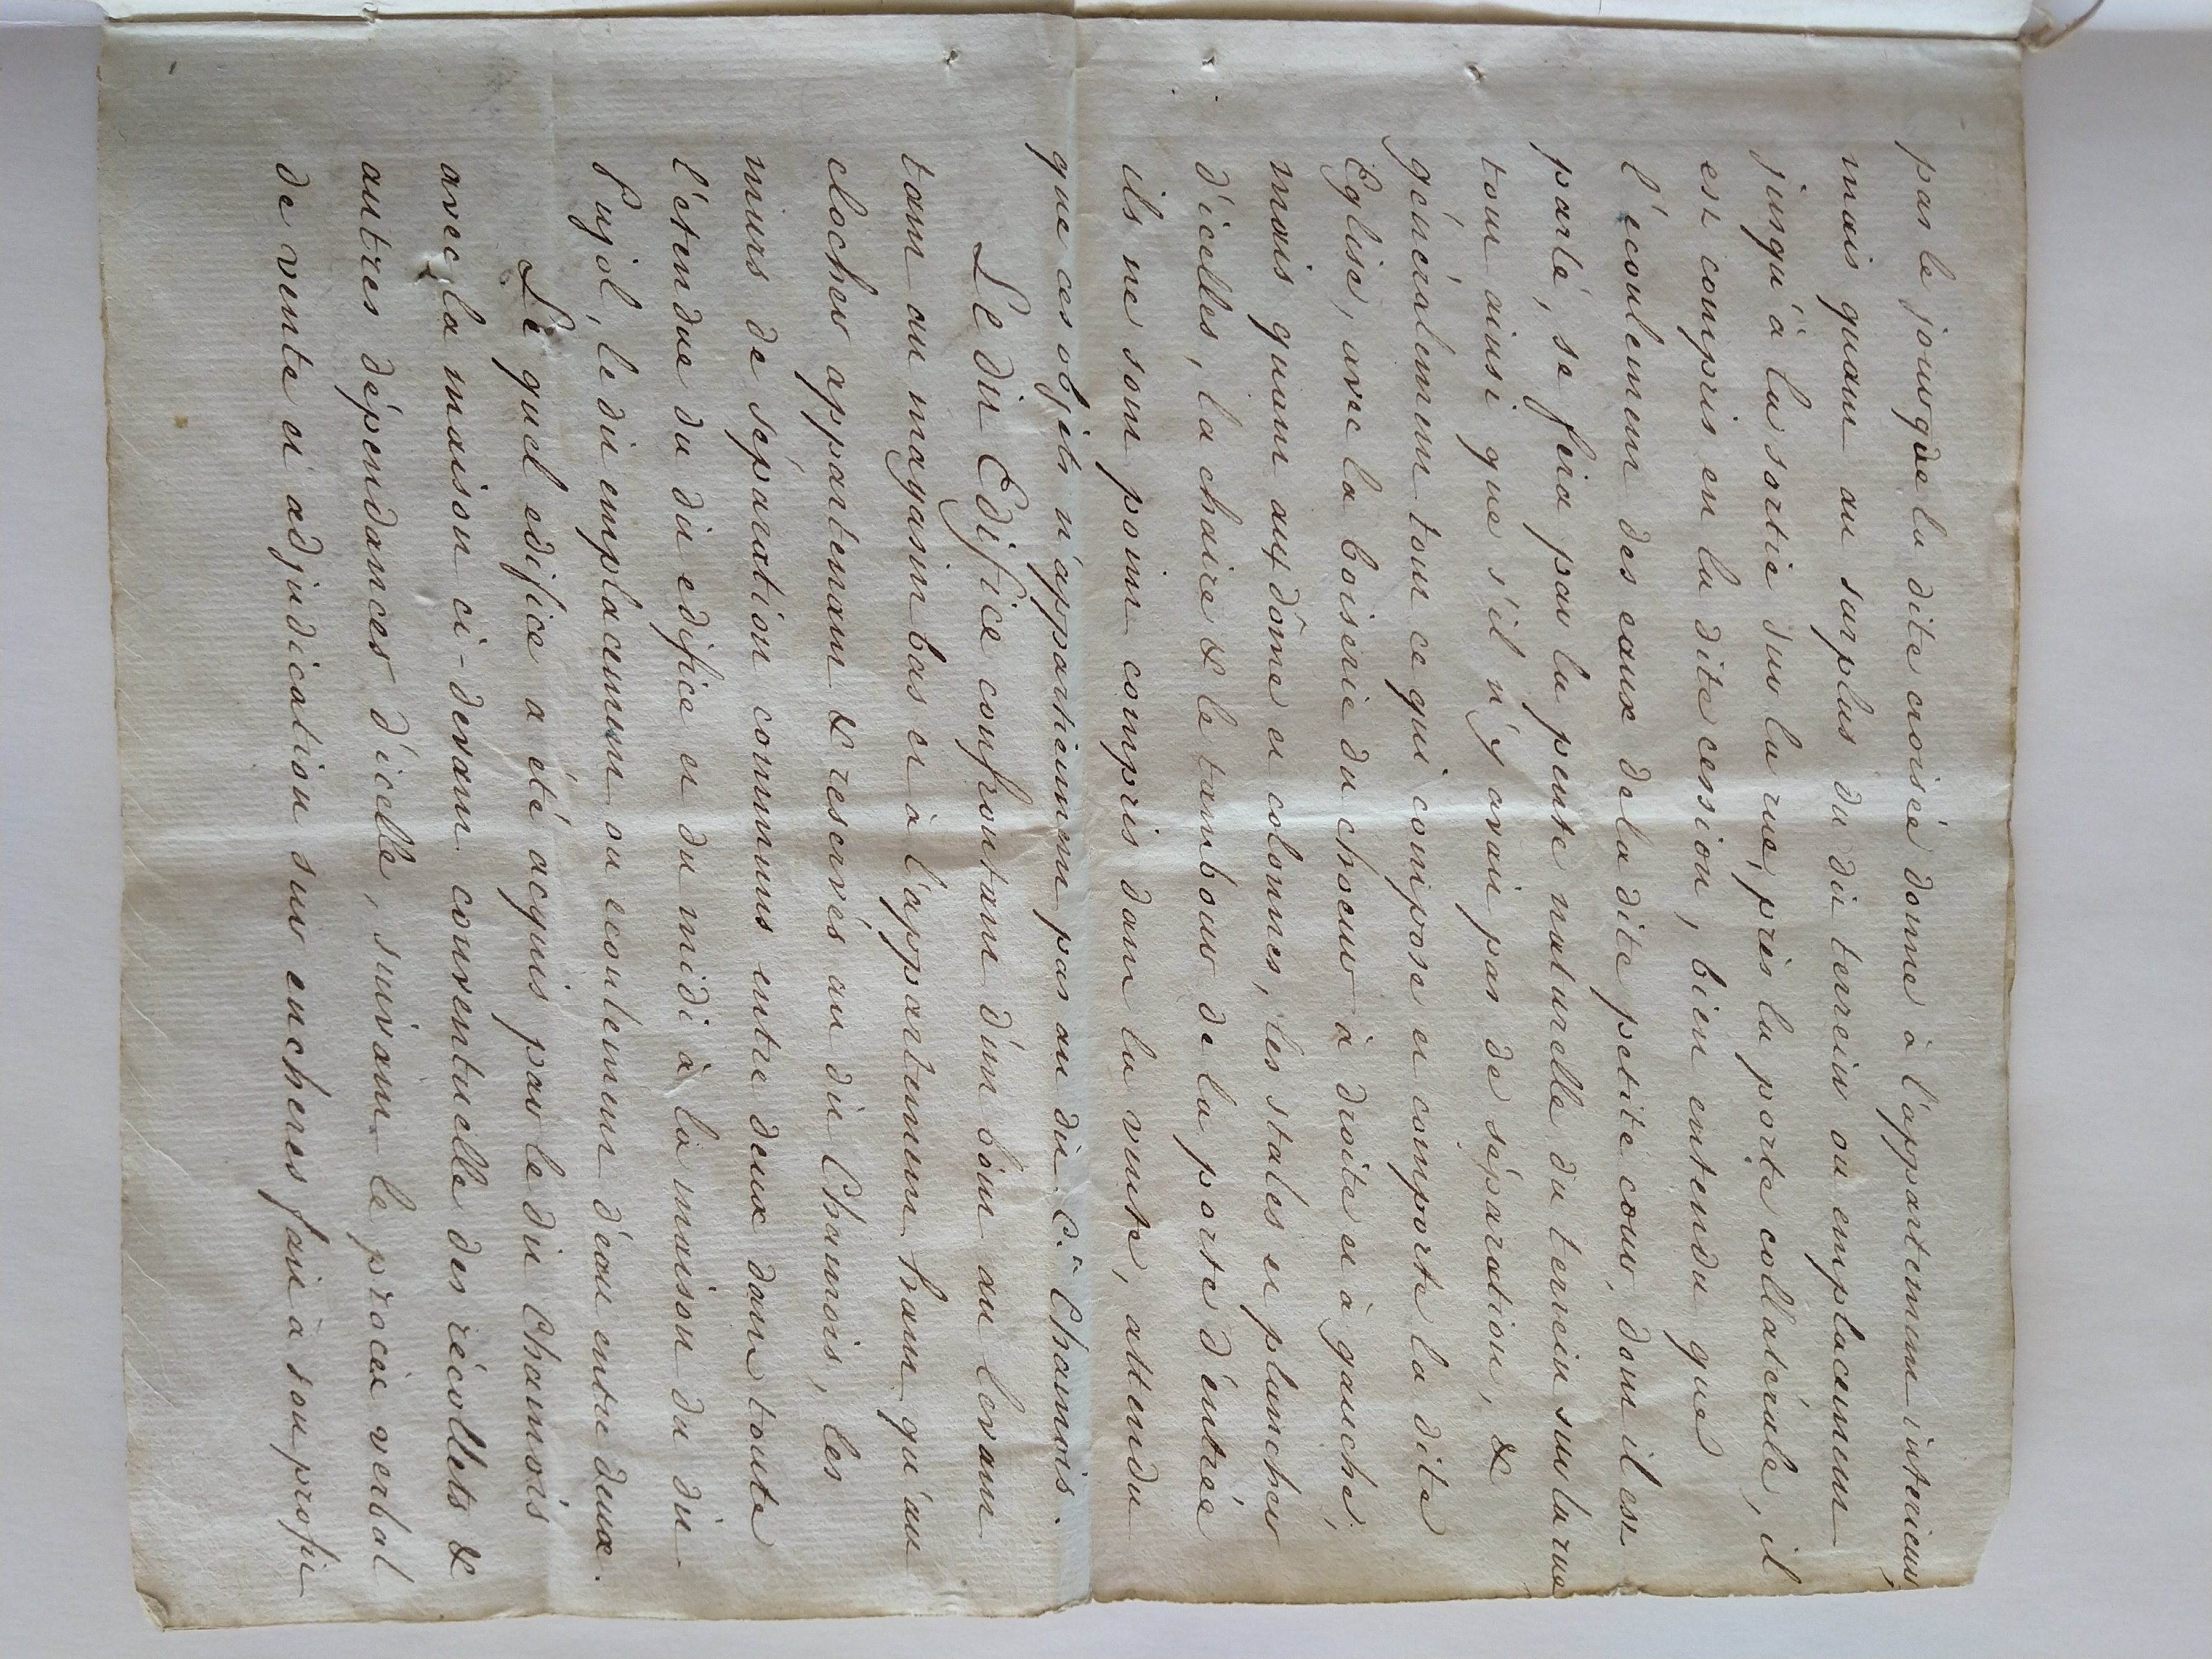 pas le jour que la dite croisée donne à l'appartement interieur,
mais quant au surplus du dit terrein ou emplacement
jusqu'à la sortie sur la rue, près la porte collatérale, il
est compris en la dite cession, bien entendu que
l'écoulement des eaux de la dite petite cour, dont il est
parlé, se fera par la pente naturelle du terrein sur la rue
tout ainsi que s'il n'y avait pas de séparation, &
généralement tout ce qui compose et comporte la dite
Eglise, avec la boiserie du choeur à droite et à gauche,
mais quant aux dôme et colonnes, les stales et plancher
d'icelles, la chaire & le tambour de la porte d'entrée
ils ne sont point compris dans la vente, attendu
que ces objets n'appartiennent pas au dit C.n Chamois.
Le dit Edifice confrontant d'un bout au levant
tant au magasin bas et à l'appartement haut qu'au
clocher appartenant & reservés au dit Chamois, les
murs de séparation communs entre deux dans toute
l'étendue du dit edifice et du midi à la maison du dit
Pujol, le dit emplacement ou ecoulement d'eau entre deux.
Le quel edifice a été acquis par le dit Chamois
avec la maison ci-devant conventuelle des récollets &
autres dépendances d'icelle, suivant le procès verbal
de vente et adjudication sur encheres fait à son profit